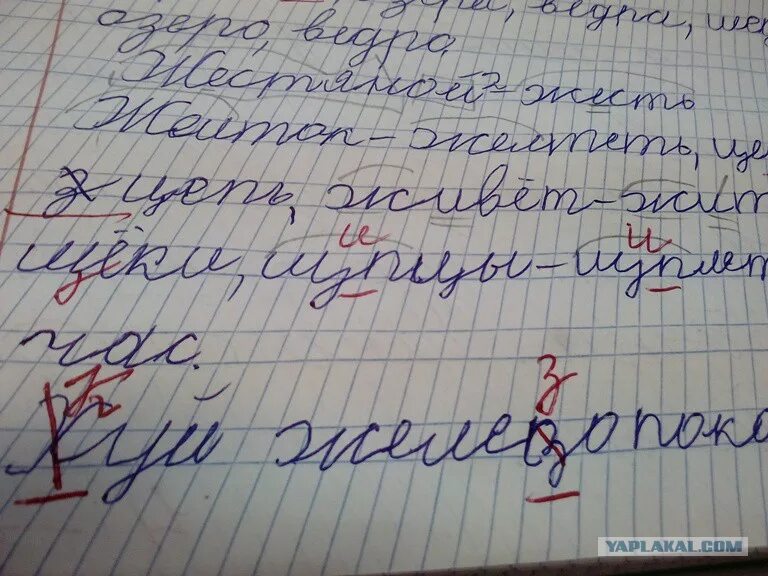 ведра,
озеро, ведро
Жестяной - жесть
Желток - желтеть,
цепь, живёт - жит
и и
щёки, щупцы - щуплет
час.
К з
Хуй желево пока
YAPLAKAL.COM